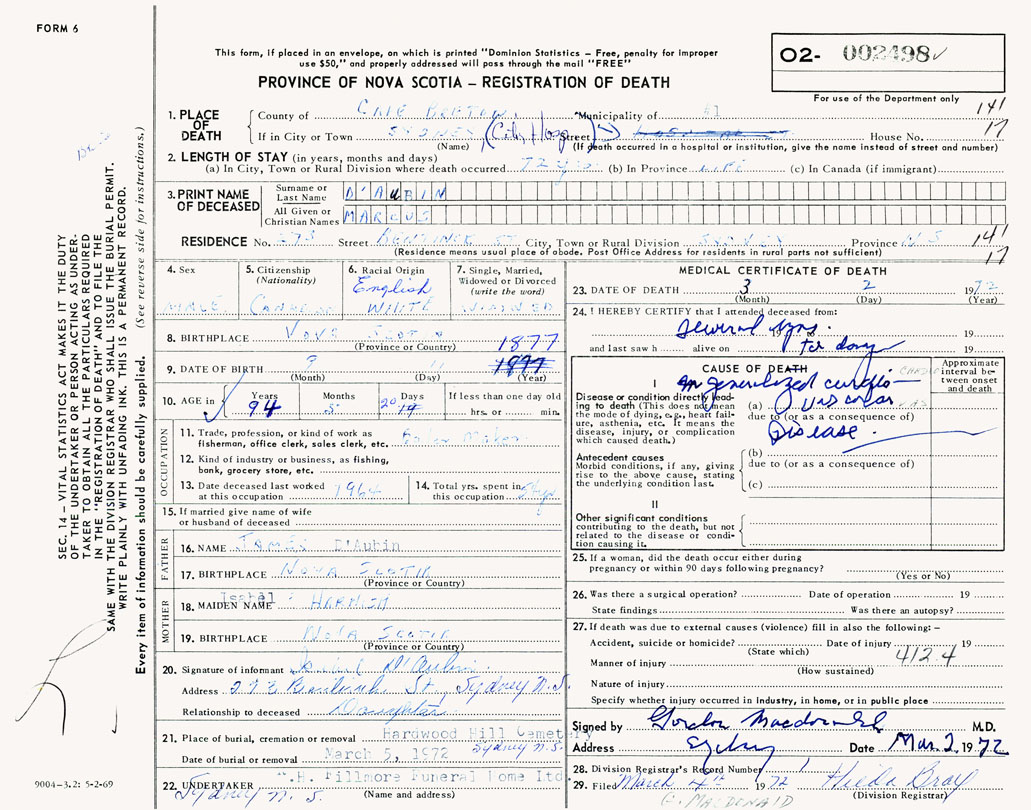 FORM 6
This form, if placed in an envelope, on which is printed "Dominion Statistics – Free, penalty for improper
use $50," and properly addressed will pass through the mail "FREE"
PROVINCE OF NOVA SCOTIA – REGISTRATION OF DEATH
O2- 002498 ✓
For use of the Department only
1. PLACE OF DEATH
County of CAPE BRETON Municipality of #1 141
If in City or Town SYDNEY (City Hosp) Street House No. 17
(Name) (If death occurred in a hospital or institution, give the name instead of street and number)
2. LENGTH OF STAY (in years, months and days)
(a) In City, Town or Rural Division where death occurred 72 yrs (b) In Province LIFE (c) In Canada (if immigrant)
3. PRINT NAME OF DECEASED
Surname or Last Name D'AUBIN
All Given or Christian Names MARCUS
RESIDENCE No. 273 Street BENTINCK ST City, Town or Rural Division SYDNEY Province N S 141
(Residence means usual place of abode. Post Office Address for residents in rural parts not sufficient) 17
4. Sex MALE
5. Citizenship (Nationality) CANADIAN
6. Racial Origin English WHITE
7. Single, Married, Widowed or Divorced (write the word)
8. BIRTHPLACE NOVA SCOTIA
(Province or Country) 1877
9. DATE OF BIRTH 9 1877
(Month) (Day) (Year)
10. AGE in Years 94 Months 5 Days 20 If less than one day old
hrs. or min.
OCCUPATION
11. Trade, profession, or kind of work as
fisherman, office clerk, sales clerk, etc. Boiler Maker
12. Kind of industry or business, as fishing,
bank, grocery store, etc.
13. Date deceased last worked
at this occupation 1964
14. Total yrs. spent in
this occupation
15. If married give name of wife
or husband of deceased
FATHER
16. NAME JAMES D'Aubin
17. BIRTHPLACE NOVA SCOTIA
(Province or Country)
MOTHER
Isabel
18. MAIDEN NAME HARNISH
19. BIRTHPLACE NOVA SCOTIA
(Province or Country)
20. Signature of informant D'Aubin
Address 273 Bentinck St, Sydney N.S.
Relationship to deceased Daughter
21. Place of burial, cremation or removal Hardwood Hill Cemetery
Sydney N.S.
Date of burial or removal March 5, 1972
.H. Fillmore Funeral Home Ltd.
22. UNDERTAKER Sydney N. S.
(Name and address)
MEDICAL CERTIFICATE OF DEATH
23. DATE OF DEATH 3 2 1972
(Month) (Day) (Year)
24. I HEREBY CERTIFY that I attended deceased from:
several yrs. 19
and last saw h alive on to day 19
CAUSE OF DEATH
Approximate interval between onset and death
I
generalized cardio-
Disease or condition directly leading to death (This does not mean the mode of dying, e.g., heart failure, asthenia, etc. It means the disease, injury, or complication which caused death.)
(a) vascular
due to (or as a consequence of)
Disease.
Antecedent causes
Morbid conditions, if any, giving rise to the above cause, stating the underlying condition last.
(b)
due to (or as a consequence of)
(c)
II
Other significant conditions
contributing to the death, but not related to the disease or condition causing it.
25. If a woman, did the death occur either during
pregnancy or within 90 days following pregnancy?
(Yes or No)
26. Was there a surgical operation? Date of operation 19
State findings Was there an autopsy?
27. If death was due to external causes (violence) fill in also the following: –
Accident, suicide or homicide? Date of injury 19
(State which) 412.4
Manner of injury
(How sustained)
Nature of injury
Specify whether injury occurred in industry, in home, or in public place
Signed by Gordon Macdonald M.D.
Address Sydney Date Mar. 2, 1972
28. Division Registrar's Record Number
29. Filed March 4th 1972 Hilda Gray
(Division Registrar)
G. MACDONALD
SEC. 14 – VITAL STATISTICS ACT MAKES IT THE DUTY
OF THE UNDERTAKER OR PERSON ACTING AS UNDER-
TAKER TO OBTAIN ALL THE PARTICULARS REQUIRED
IN THE "REGISTRATION OF DEATH" AND TO FILE THE
SAME WITH THE DIVISION REGISTRAR WHO SHALL ISSUE THE BURIAL PERMIT.
WRITE PLAINLY WITH UNFADING INK. THIS IS A PERMANENT RECORD.
Every item of information should be carefully supplied. (See reverse side for instructions.)
9004–3.2: 5-2-69